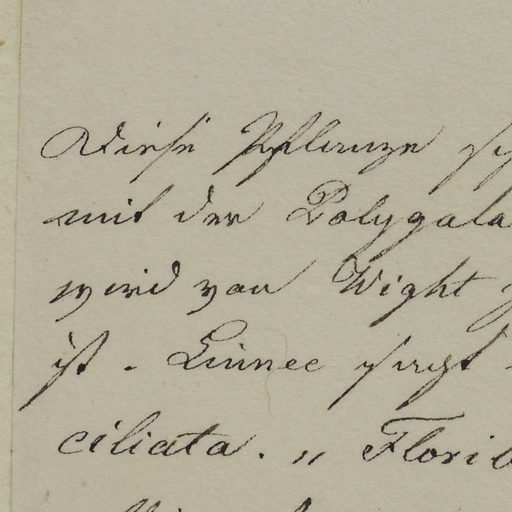 Diese Pflanze
mit der Polygala
wird von Wight
ist. Linnee sagt
ciliata. „ Flori